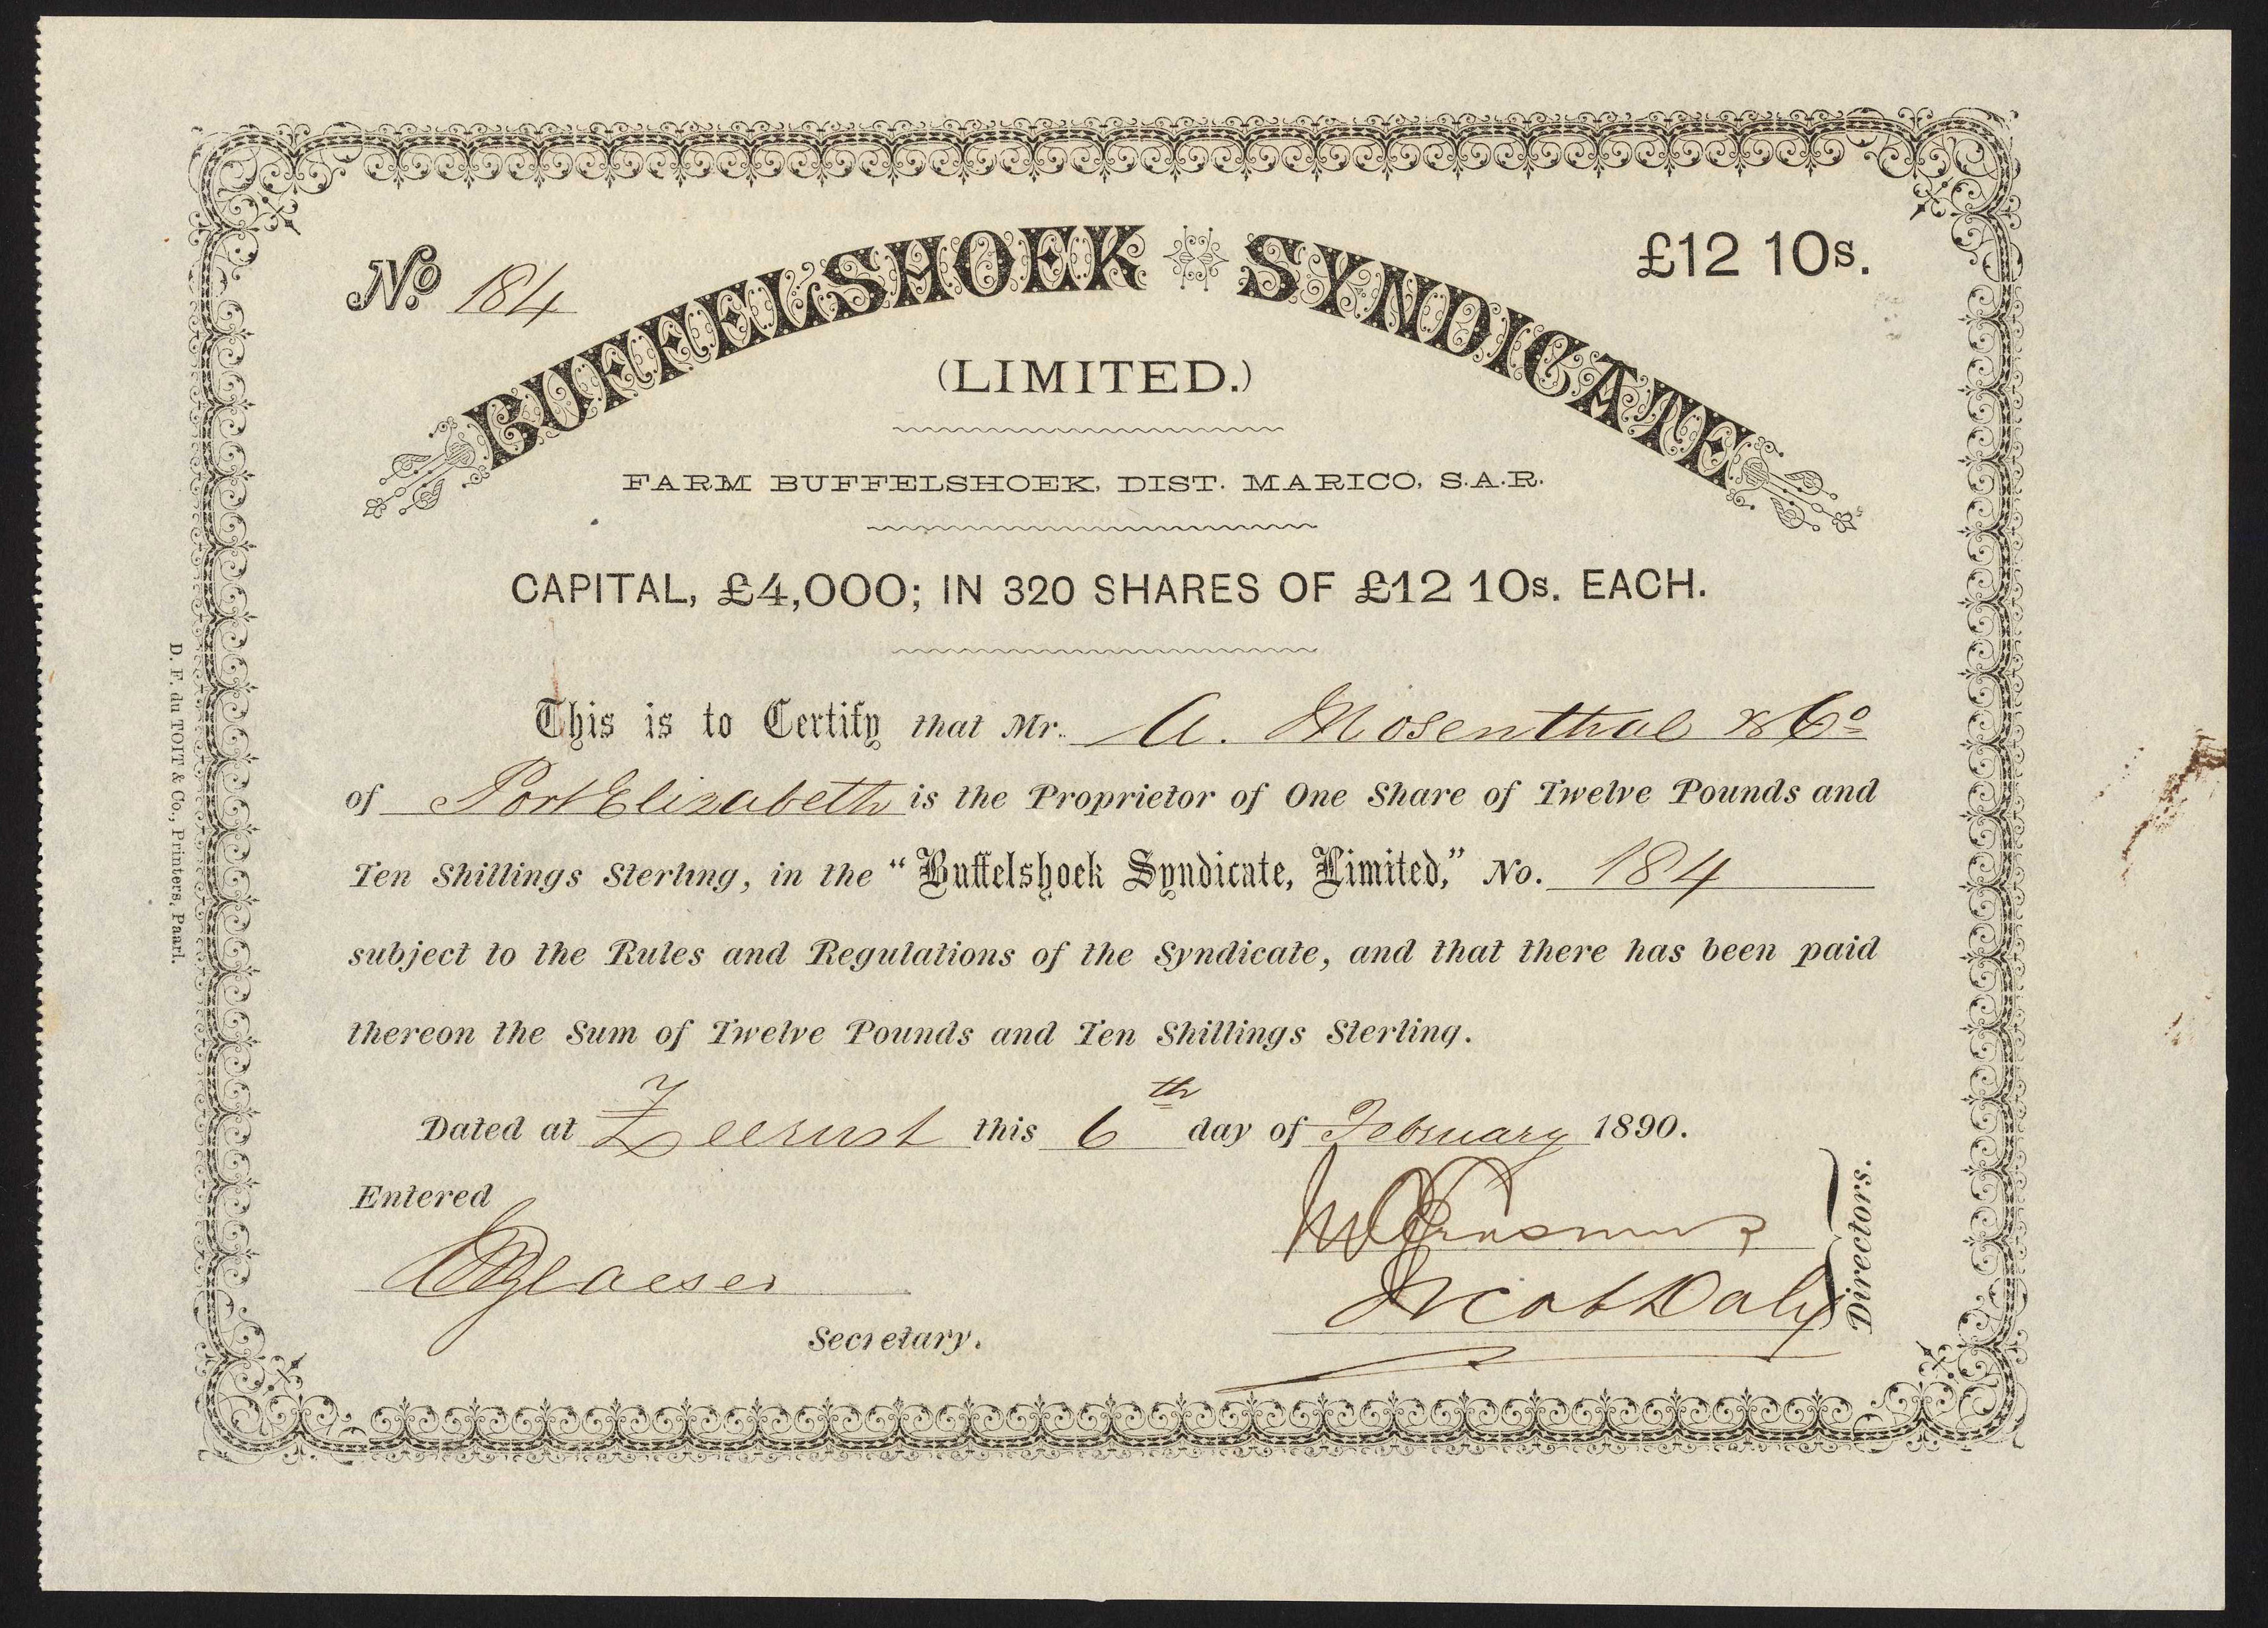 No 184
£12 10s.
BUFFELSHOEK SYNDICATE
(LIMITED.)
FARM BUFFELSHOEK, DIST. MARICO, S.A.R.
CAPITAL, £4,000; IN 320 SHARES OF £12 10s. EACH.
This is to Certify that Mr. A. Mosenthal & Co
of Port Elizabeth is the Proprietor of One Share of Twelve Pounds and
Ten Shillings Sterling, in the "Buffelshoek Syndicate, Limited," No. 184
subject to the Rules and Regulations of the Syndicate, and that there has been paid
thereon the Sum of Twelve Pounds and Ten Shillings Sterling.
Dated at Zeerust this 6th day of February 1890.
Entered
Glaeser
Secretary.
Erasmus
Daly
Directors.
D. F. du TOIT & Co., Printers, Paarl.